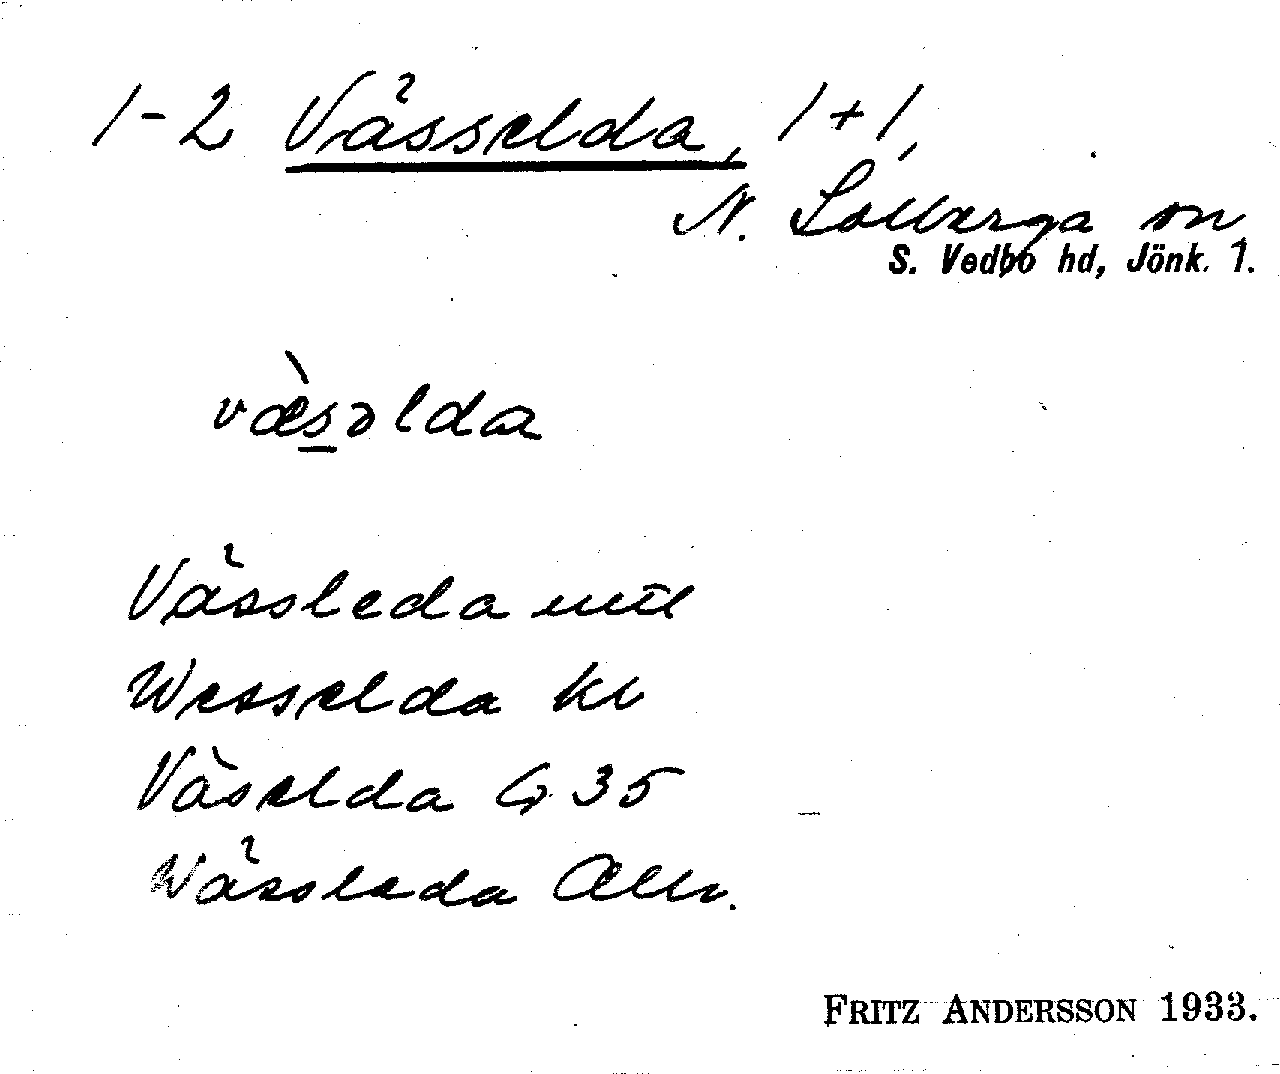 1-2 Vässelda, 1+1,
N. Solberga sn
S. Vedbo hd, Jönk. l.
væ̀s̲əlda
Vässleda
Wesselda kb
Väselda G 35
Wässleda Allm.
FRITZ ANDERSSON 1933.